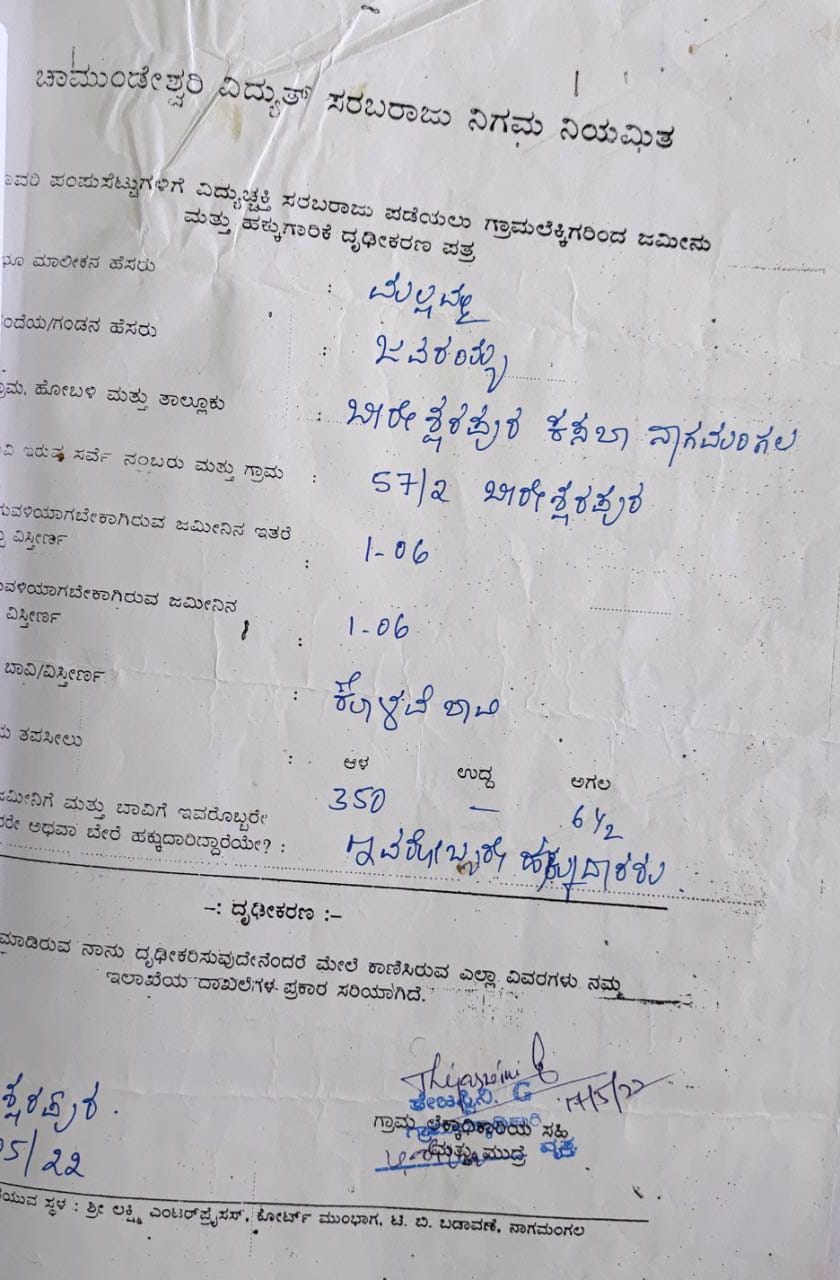 ಚಾಮುಂಡೇಶ್ವರಿ ವಿದ್ಯುತ್ ಸರಬರಾಜು ನಿಗಮ ನಿಯಮಿತ
ಪಂಪುಸೆಟ್ಟುಗಳಿಗೆ ವಿದ್ಯುಚ್ಛಕ್ತಿ ಸರಬರಾಜು ಪಡೆಯಲು ಗ್ರಾಮಲೆಕ್ಕಿಗರಿಂದ ಜಮೀನು
ಮತ್ತು ಹಕ್ಕುಗಾರಿಕೆ ದೃಢೀಕರಣ ಪತ್ರ
ಮಾಲೀಕನ ಹೆಸರು :
ಂದೆಯ/ಗಂಡನ ಹೆಸರು : ಜವರಯ್ಯ
ಹೋಬಳಿ ಮತ್ತು ತಾಲ್ಲೂಕು : ಬೀರೇಶ್ವರಪುರ ಕಸಬಾ ನಾಗಮಂಗಲ
ಇರುವ ಸರ್ವೆ ನಂಬರು ಮತ್ತು ಗ್ರಾಮ : 57/2 ಬೀರೇಶ್ವರಪುರ
ುವಳಿಯಾಗಬೇಕಾಗಿರುವ ಜಮೀನಿನ ಇತರೆ
ವಿಸ್ತೀರ್ಣ : 1-06
ುವಳಿಯಾಗಬೇಕಾಗಿರುವ ಜಮೀನಿನ
ವಿಸ್ತೀರ್ಣ : 1-06
ಬಾವಿ/ವಿಸ್ತೀರ್ಣ : ಕೊಳವೆ ಬಾವಿ
ತಪಸೀಲು : ಆಳ ಉದ್ದ ಅಗಲ
350 — 6 1/2
ಜಮೀನಿಗೆ ಮತ್ತು ಬಾವಿಗೆ ಇವರೊಬ್ಬರೇ
ಅಥವಾ ಬೇರೆ ಹಕ್ಕುದಾರಿದ್ದಾರೆಯೇ? : ಇವರೊಬ್ಬರೇ ಹಕ್ಕುದಾರರು.
-: ದೃಢೀಕರಣ :-
ಮಾಡಿರುವ ನಾನು ದೃಢೀಕರಿಸುವುದೇನೆಂದರೆ ಮೇಲೆ ಕಾಣಿಸಿರುವ ಎಲ್ಲಾ ವಿವರಗಳು ನಮ್ಮ
ಇಲಾಖೆಯ ದಾಖಲೆಗಳ ಪ್ರಕಾರ ಸರಿಯಾಗಿದೆ.
ಶ್ವರಪುರ.
05/22
17/5/22
ತೇಜಸ್ವಿನಿ. G
ಗ್ರಾಮ ಲೆಕ್ಕಾಧಿಕಾರಿಯ ಸಹಿ
ಮತ್ತು ಮುದ್ರೆ
ವೃತ್ತ
ಸ್ಥಳ : ಶ್ರೀ ಲಕ್ಷ್ಮಿ ಎಂಟರ್‌ಪ್ರೈಸಸ್, ಕೋರ್ಟ್ ಮುಂಭಾಗ, ಟಿ. ಬಿ. ಬಡಾವಣೆ, ನಾಗಮಂಗಲ